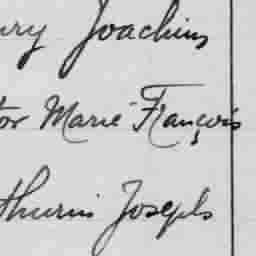 ury Joachim
tor Marie-François
thurin Joseph